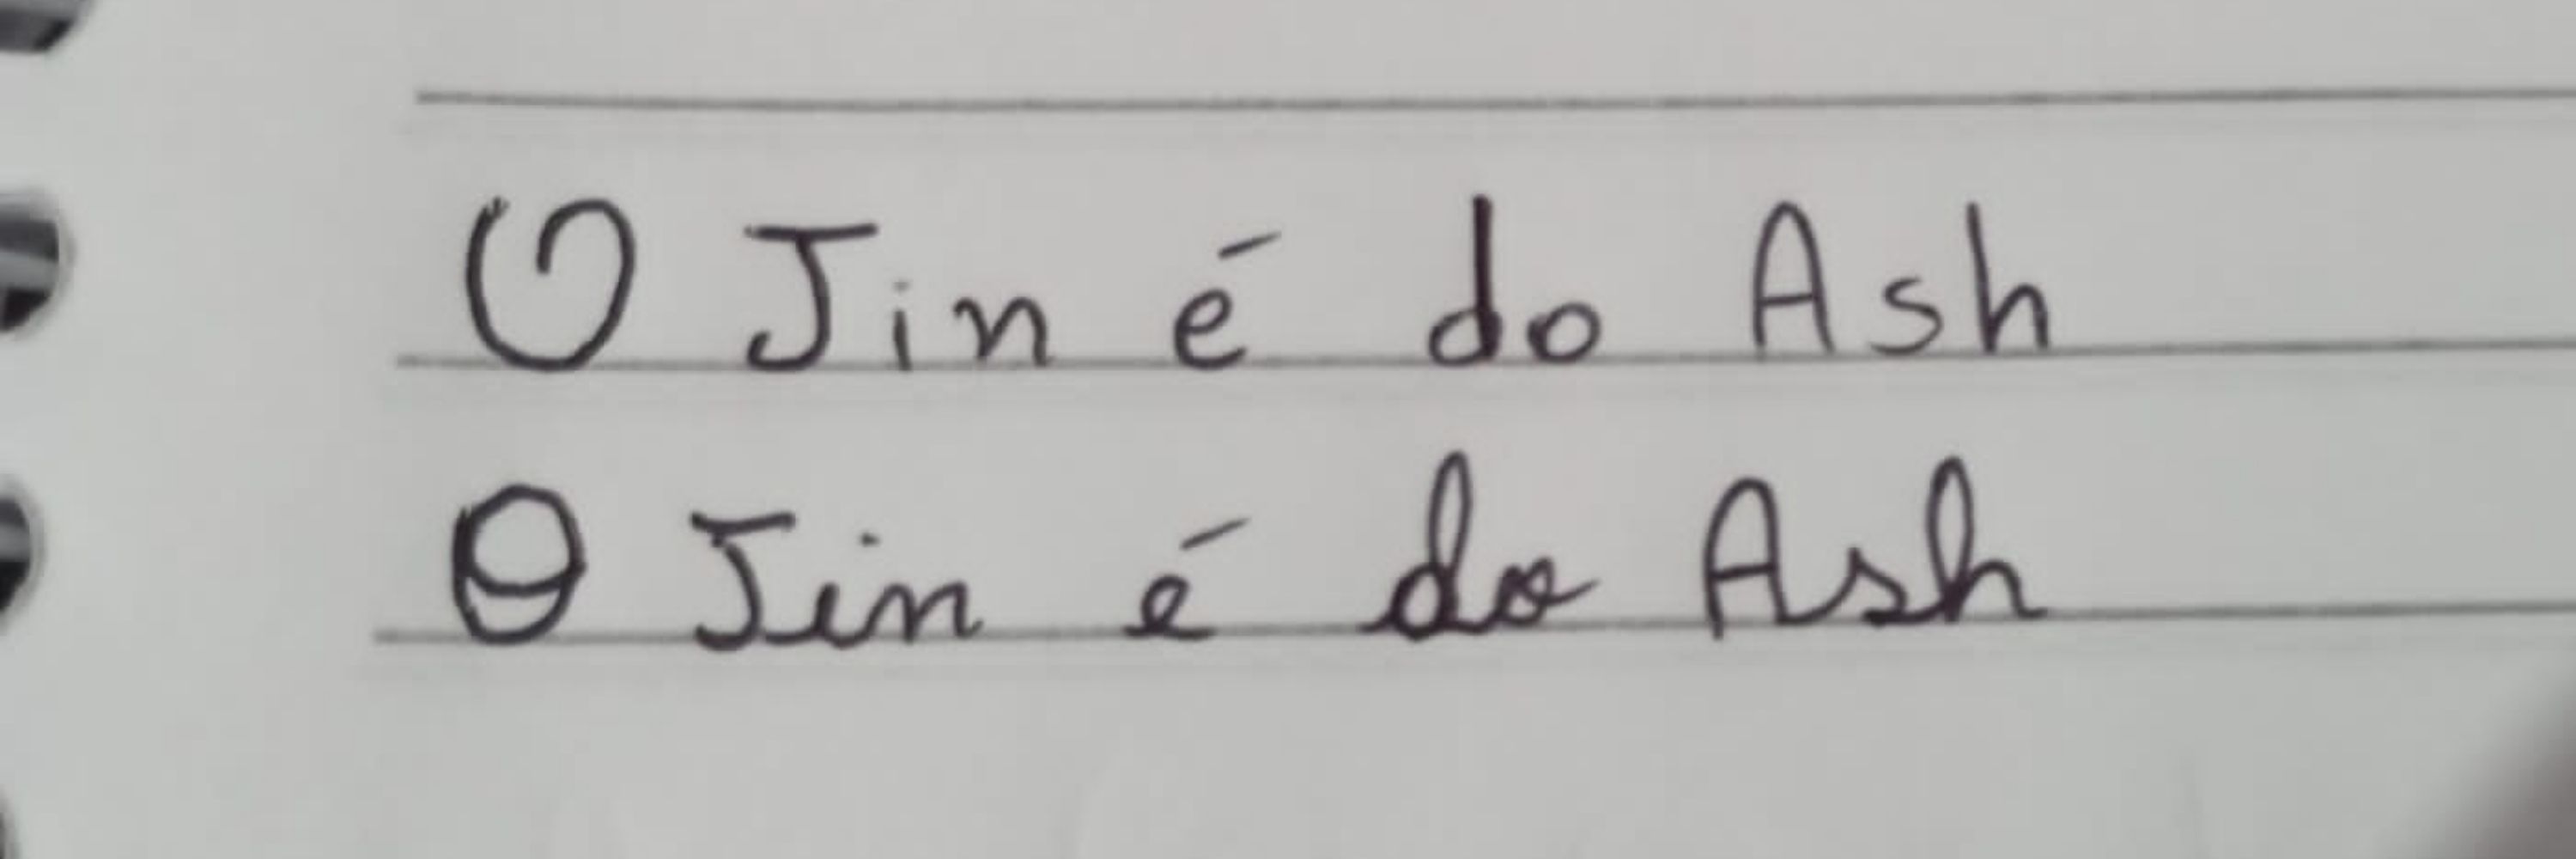 O Jin é do Ash
O Jin é do Ash